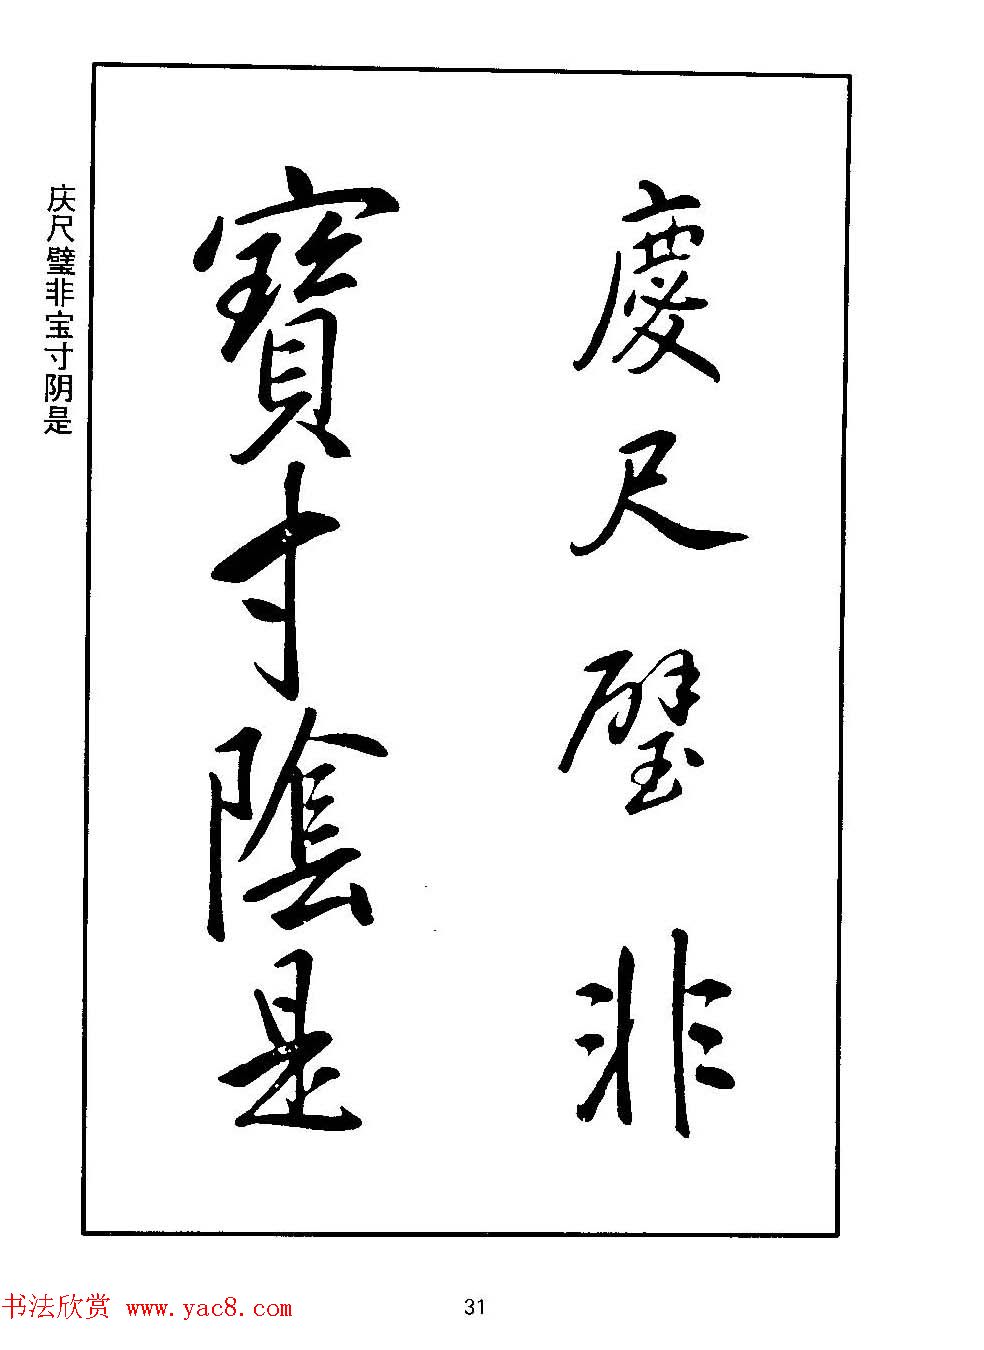 慶尺璧非
寶寸陰是
庆尺璧非宝寸阴是
书法欣赏 www.yac8.com
31